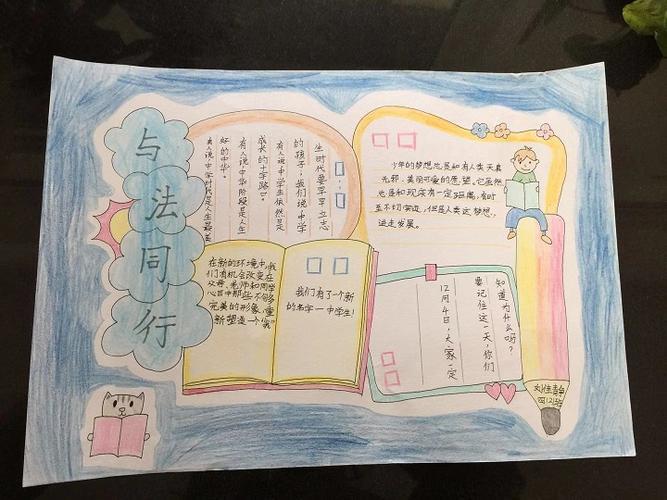 与法同行
有人说中学时代是人生最美
好的中华。
有人说中华阶段是人生
成长的十字路口。
有人说中学生依然是
的孩子；我们说中学
生时代要早早立志
少年的梦想总是和有人类天真
无邪、美丽可爱的愿望。它虽然
总是和现实有一定距离，有时
甚不切实迹，但是人类这梦想
进走发展。
在新的环境中，我
们有机会改变在
父母、老师和同学
心目中那些不够
完美的形象，重
新塑造一个“我”
我们有了一个新
的名字—中学生！
知道为什么吗？
要记住这一天，你们
12月4日，大家一定
四(2)班